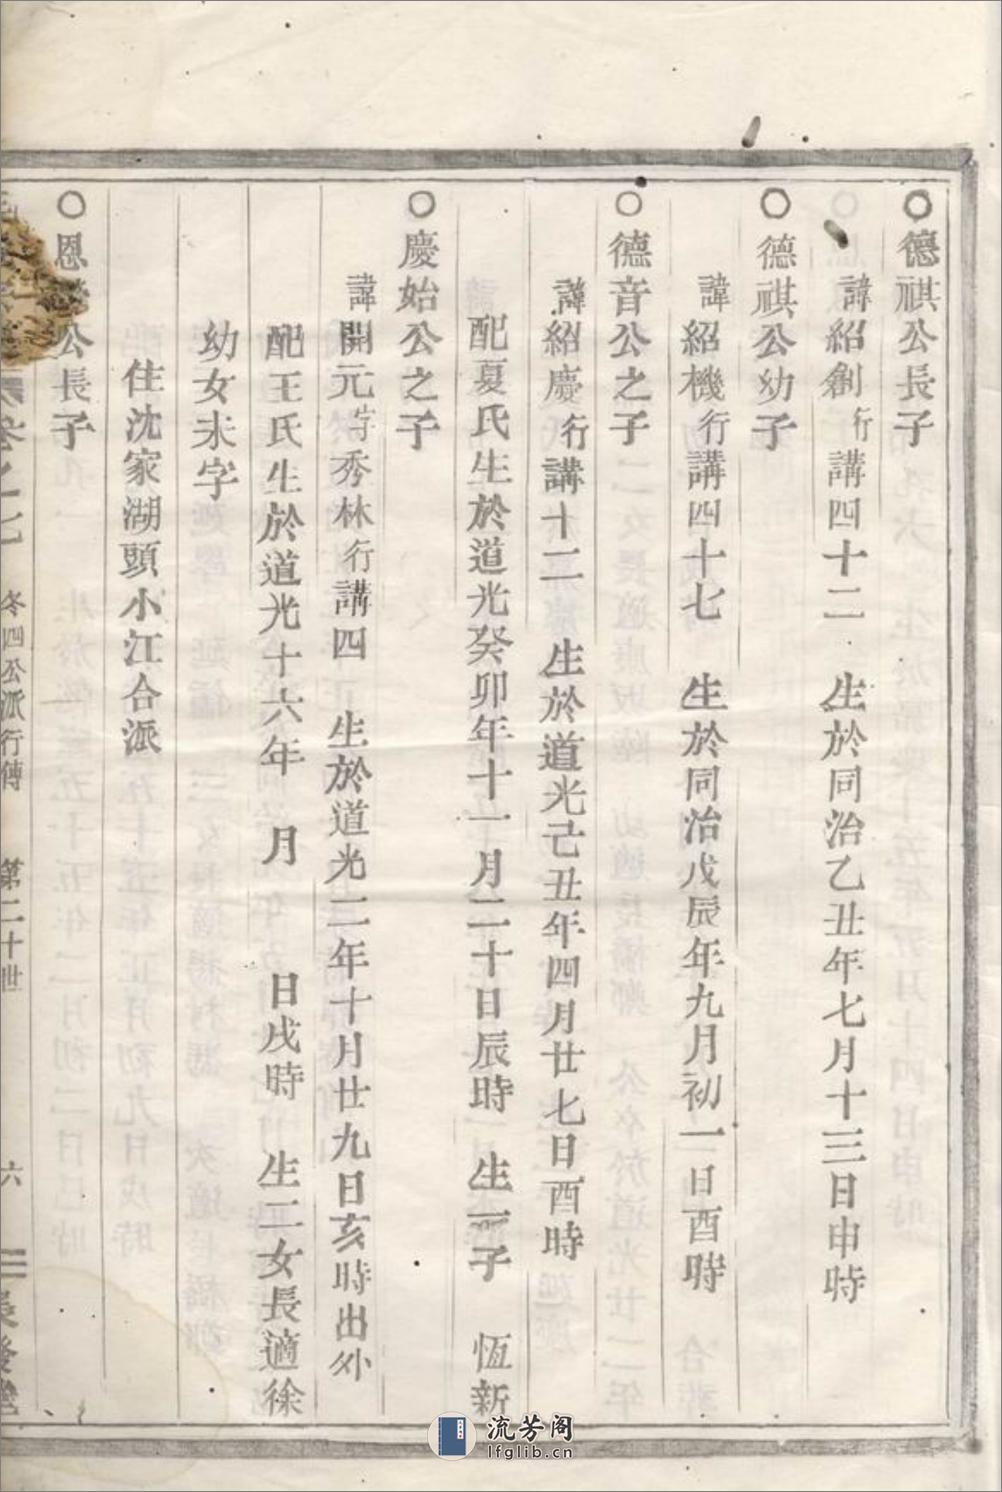 ○德祺公長子
諱紹創行講四十二 生於同治乙丑年七月十三日申時
○德祺公幼子
諱紹機行講四十七 生於同治戊辰年九月初一日酉時
○德音公之子
諱紹慶行講十二 生於道光己丑年四月廿七日酉時
配夏氏生於道光癸卯年十一月二十日辰時 生一子 恆新
○慶始公之子
諱開元字秀林行講四 生於道光二年十月廿九日亥時出外
配王氏生於道光十六年 月 日戌時 生二女長適徐
幼女未字
住沈家湖頭小江合派
○恩 公長子
卷之七 冬四公派行傳 第二十世 六
流芳阁
lfglib.cn